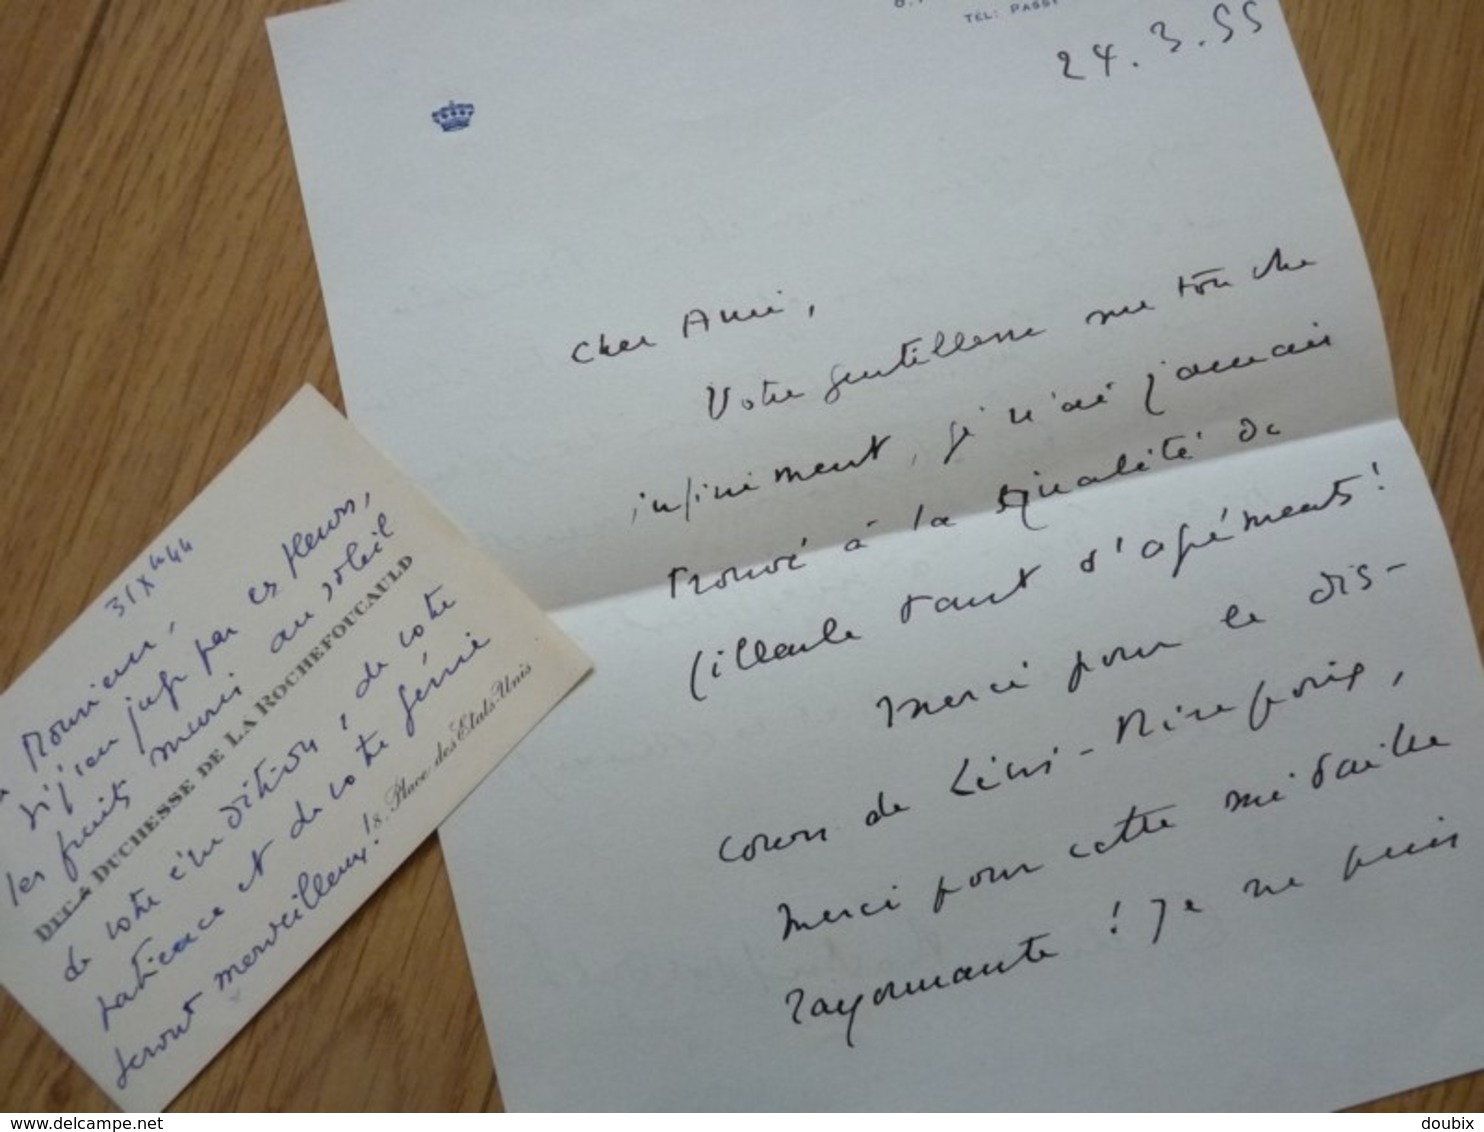 TÉL: PASSY
24.3.55
Cher Ami,
Votre gentillesse me touche
infiniment, je n'ai jamais
trouvé à la qualité de
filleule tant d'agréments!
Merci pour le dis-
cours de Lévis-Mirepoix,
Merci pour cette médaille
rayonnante! Je ne puis
31 X 44
Monsieur,
si j'en juge par ces fleurs,
les fruits muris au soleil
DUC & DUCHESSE DE LA ROCHEFOUCAULD
de votre érudition, de votre
patience et de votre génie
seront merveilleux!
8, Place des États-Unis
doubix